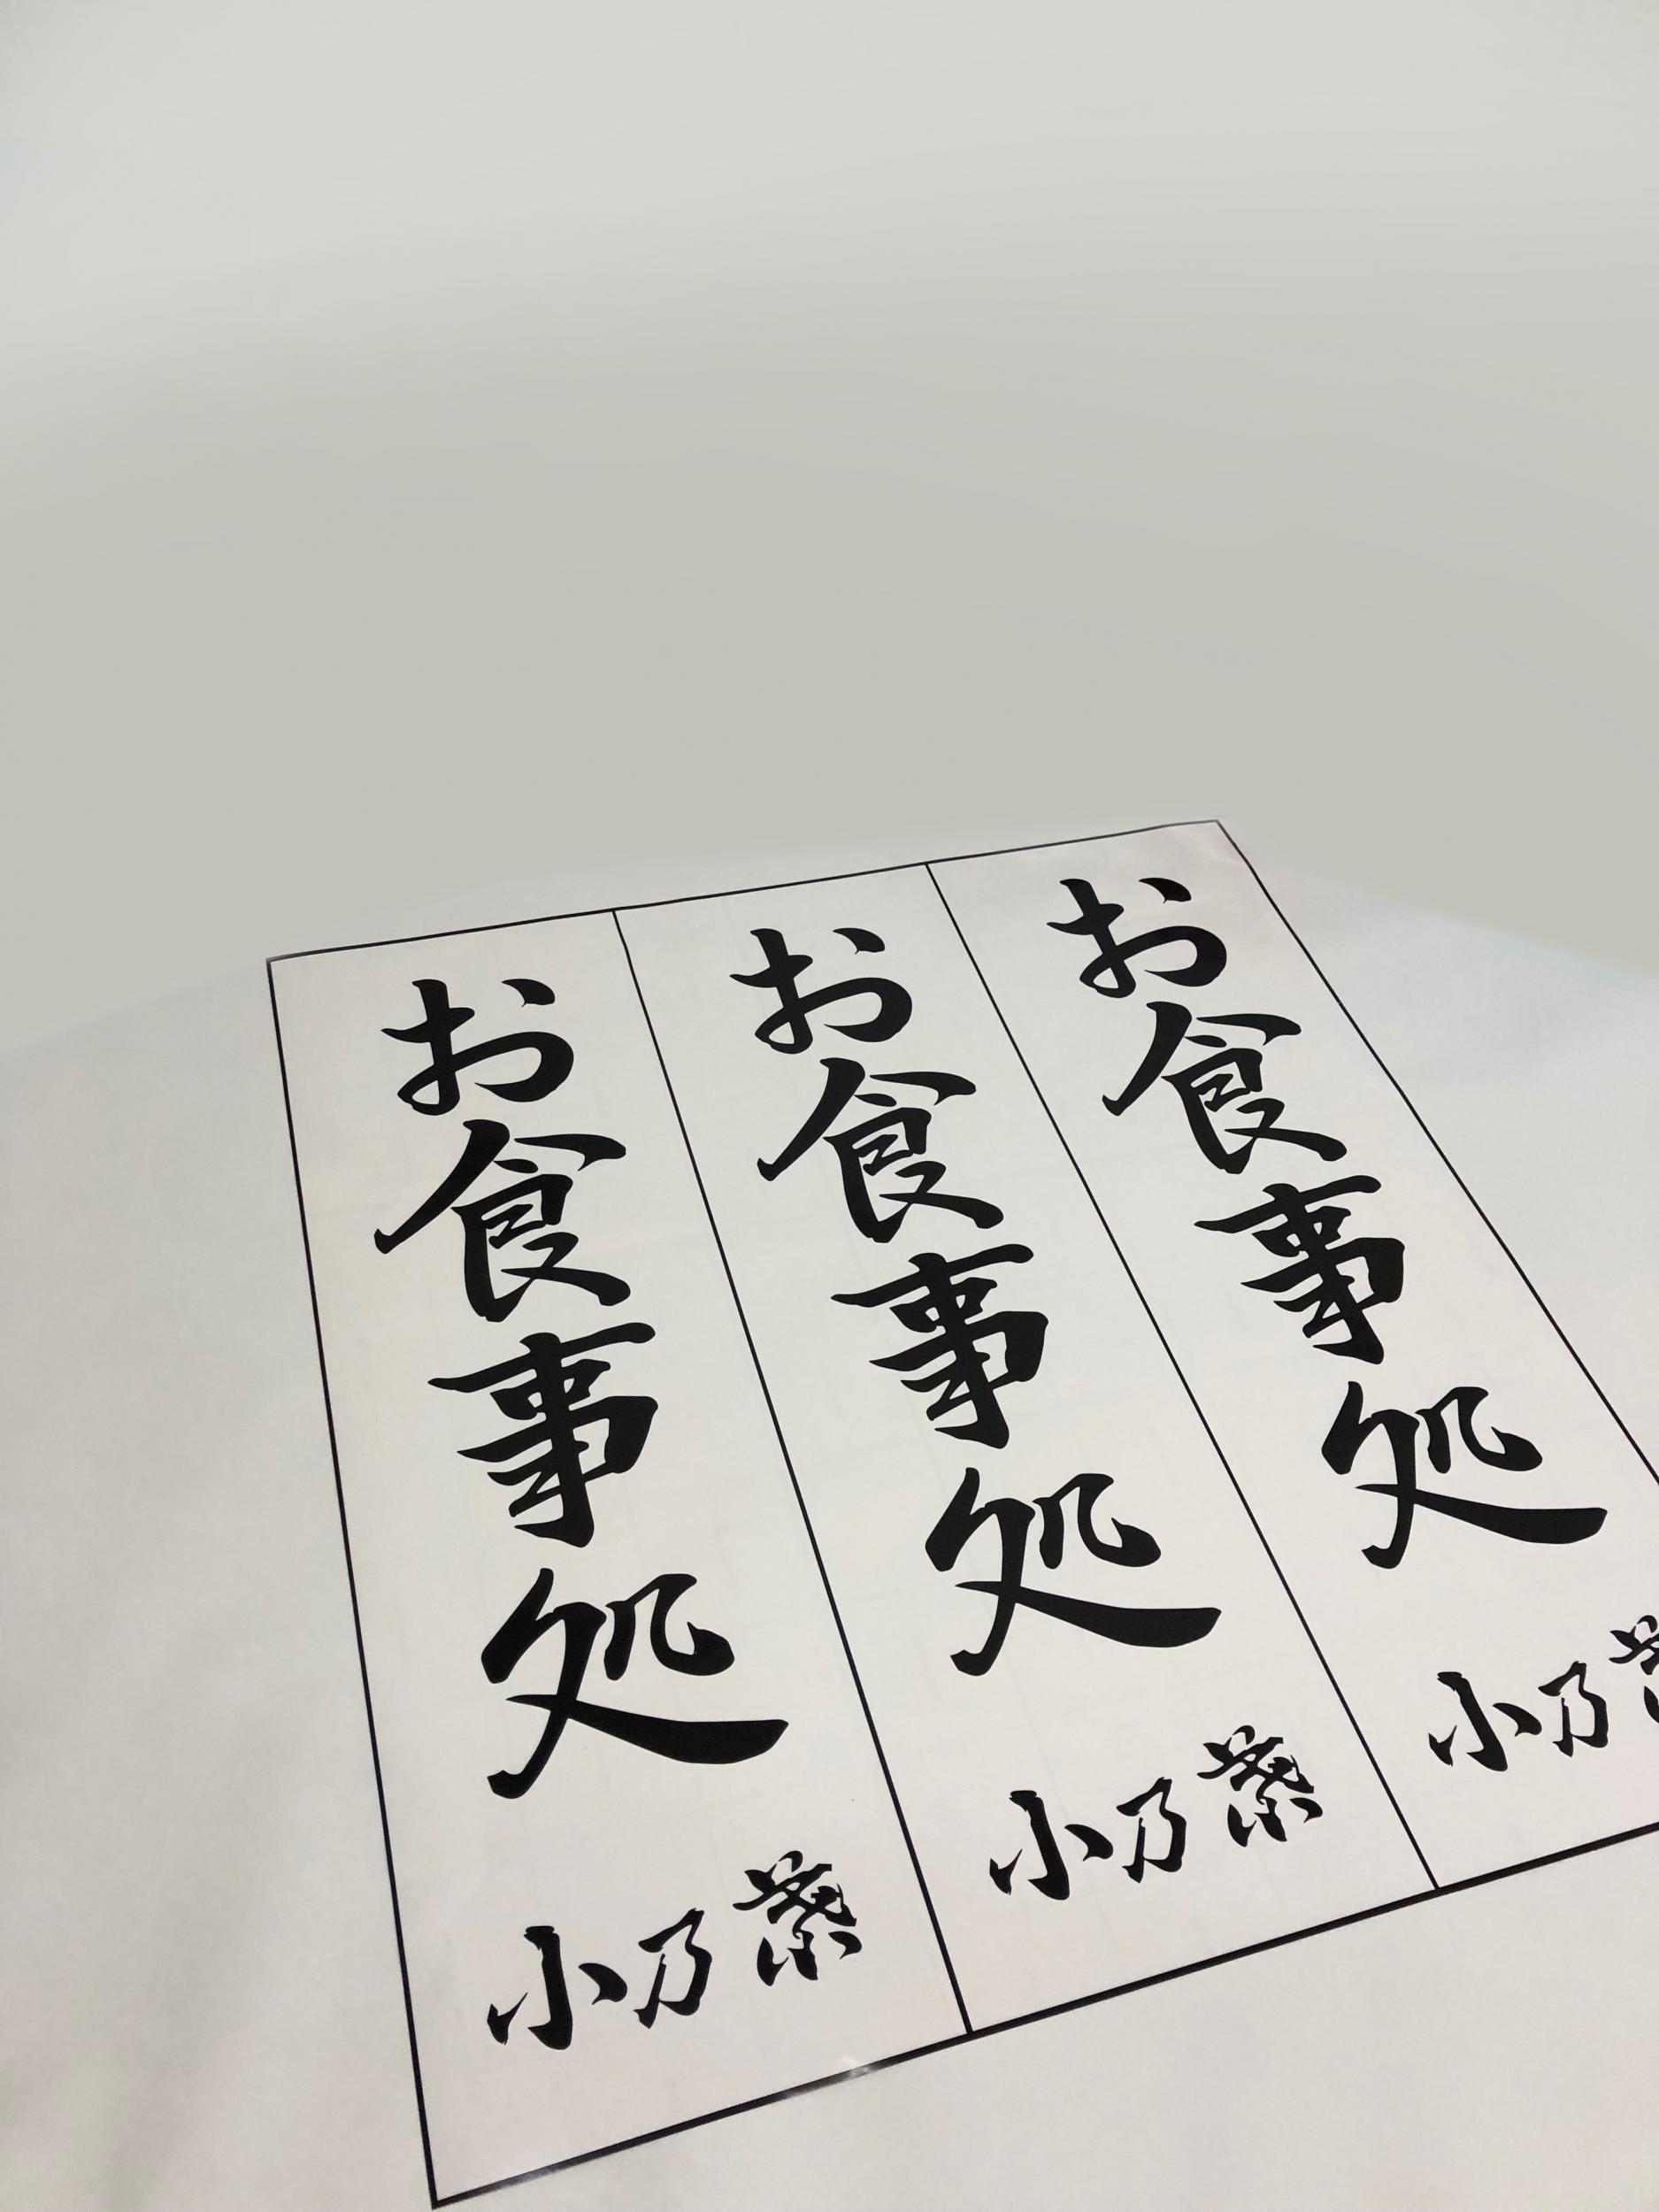 お食事処
小乃
お食事処
小乃葉
お食事処
小乃葉